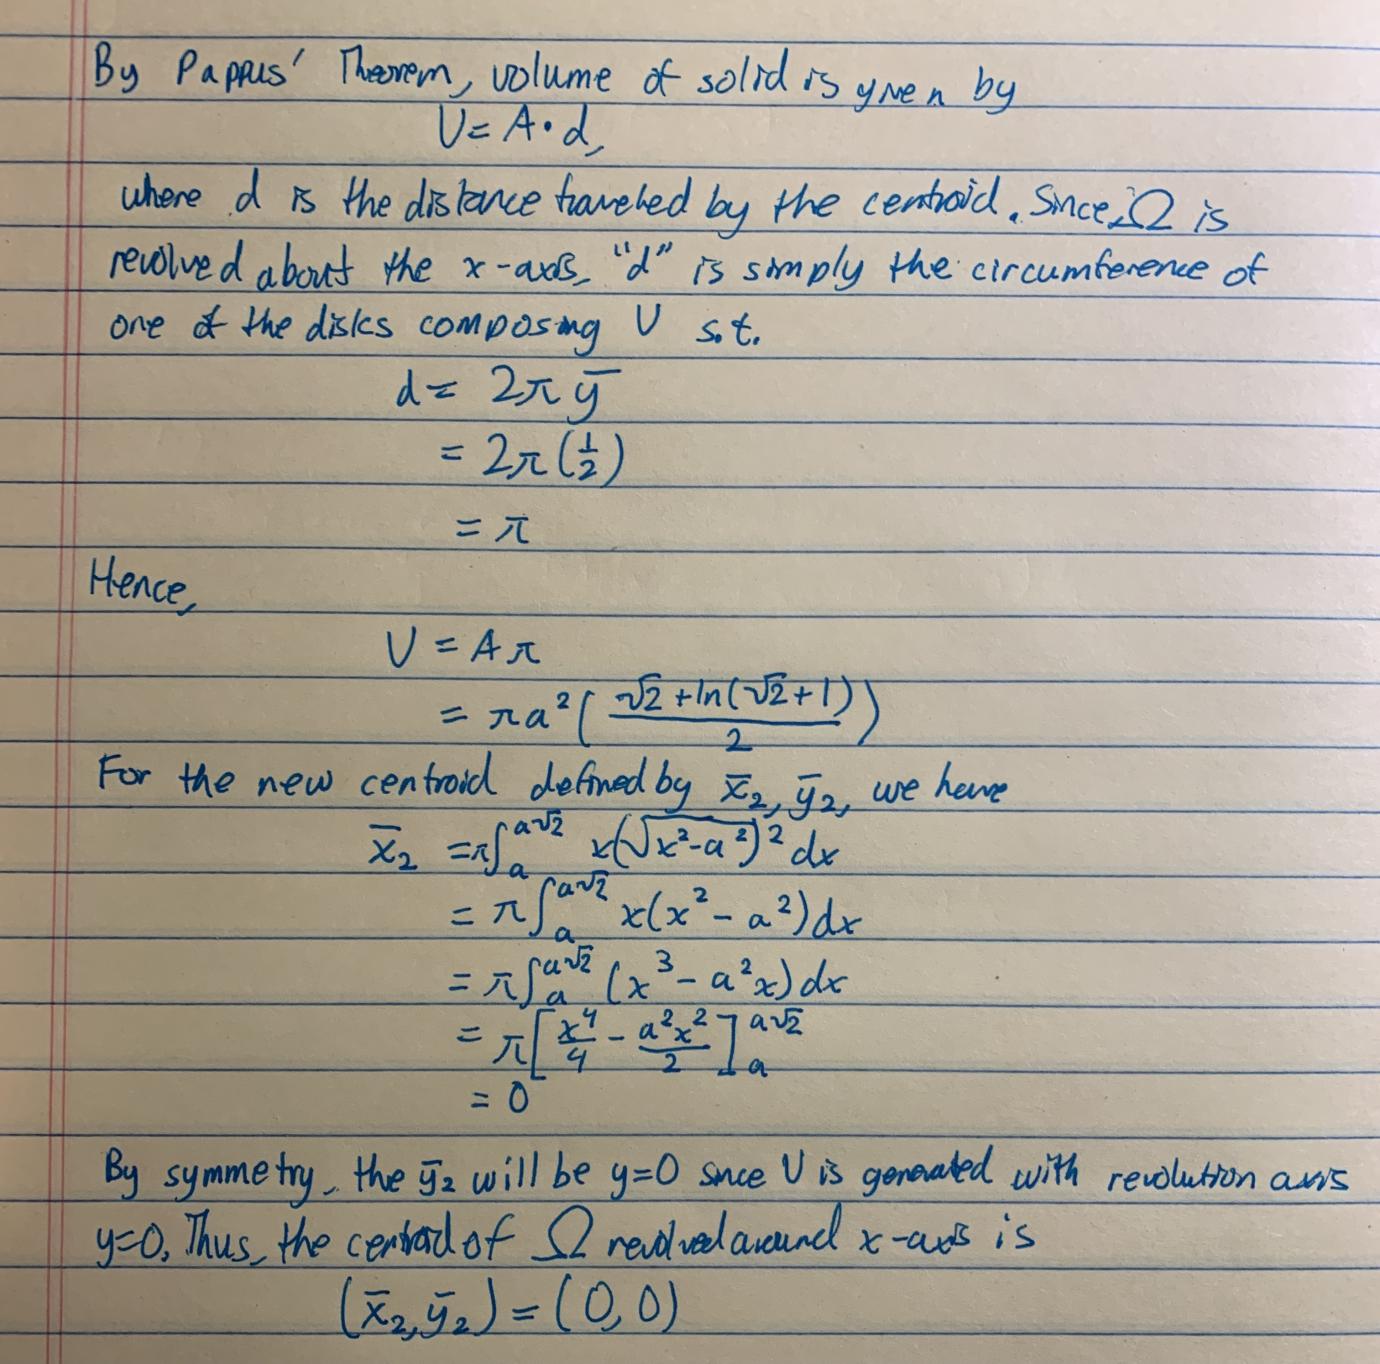 By Pappus' Theorem, volume of solid is given by
V = A · d,
where d is the distance traveled by the centroid. Since Ω is
revolved about the x-axis, "d" is simply the circumference of
one of the disks composing V s.t.
d = 2π ȳ
= 2π (1/2)
= π
Hence,
V = A π
= πa² ( (√2 + ln(√2 + 1)) / 2 )
For the new centroid defined by x̄₂, ȳ₂, we have
x̄₂ = π∫ₐ^(a√2) x(√(x²-a²))² dx
= π∫ₐ^(a√2) x(x² - a²) dx
= π∫ₐ^(a√2) (x³ - a²x) dx
= π[ x⁴/4 - a²x²/2 ]ₐ^(a√2)
= 0
By symmetry, the ȳ₂ will be y=0 since V is generated with revolution axis
y=0. Thus, the centroid of Ω revolved around x-axis is
(x̄₂, ȳ₂) = (0, 0)